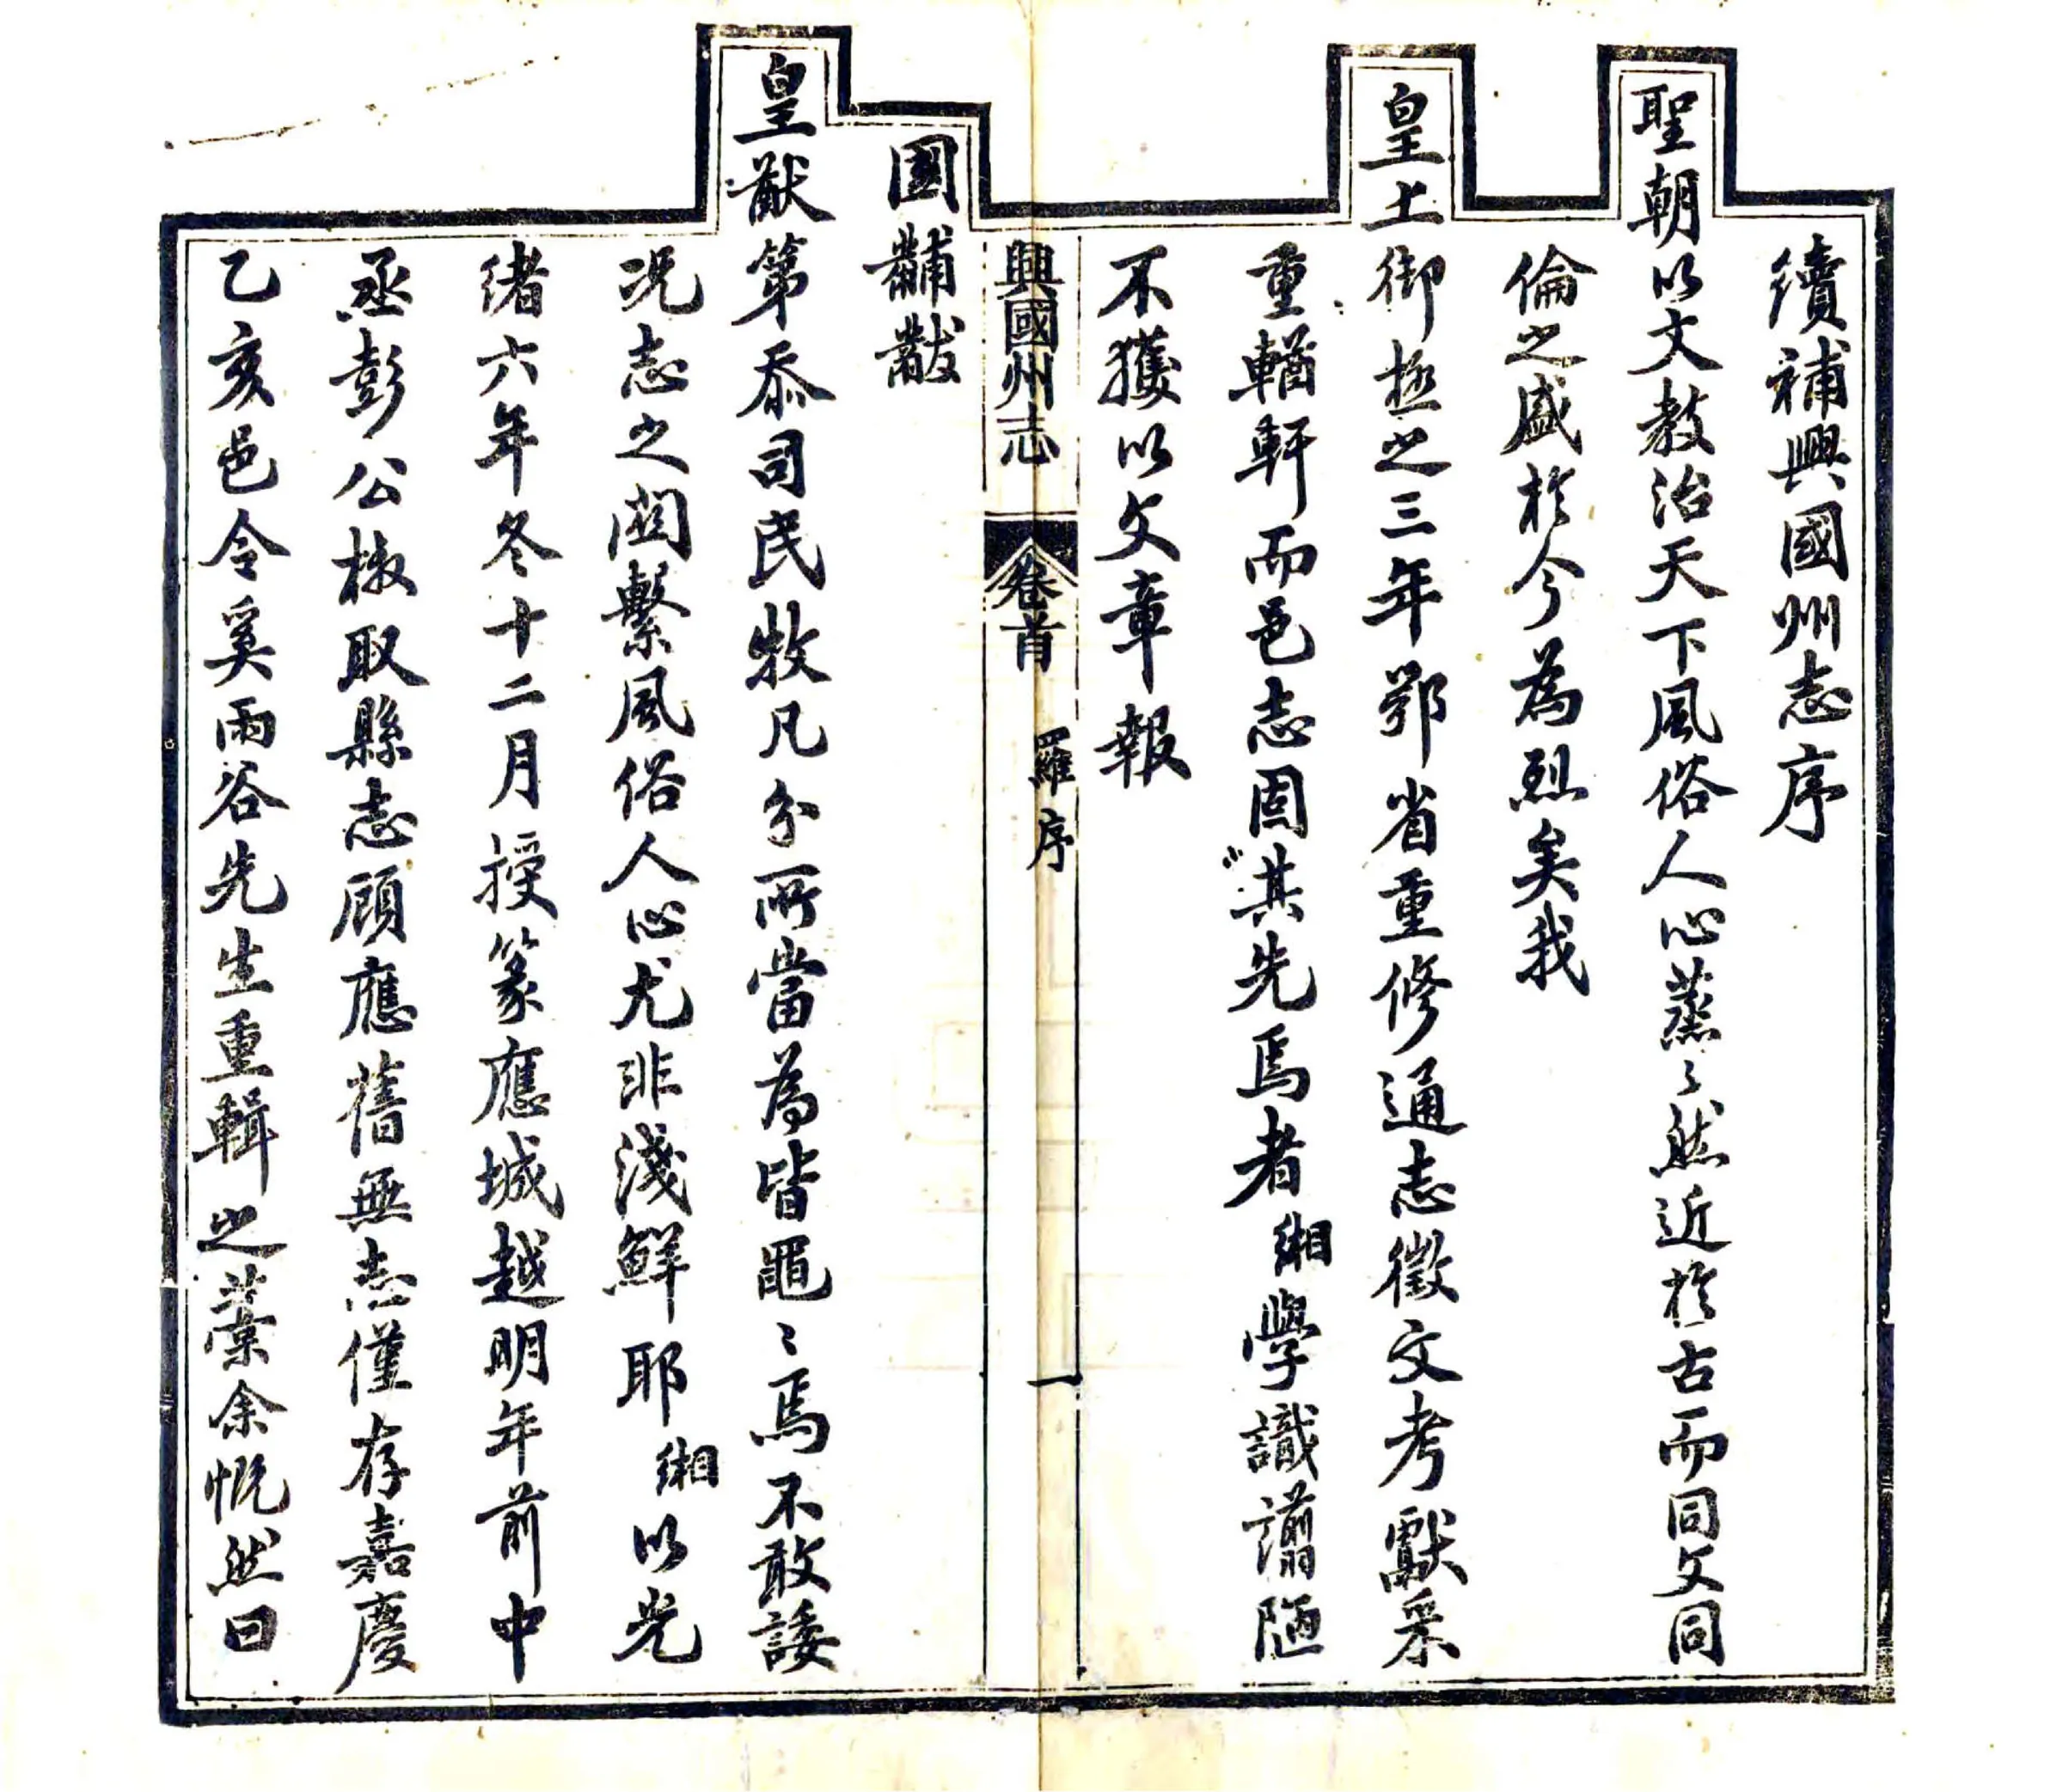 續補興國州志序
聖朝以文教治天下風俗人心蒸々然近於古而同文同
倫之盛於今為烈矣我
皇上御極之三年鄂省重修通志徵文考獻采
重輶軒而邑志固其先焉者緗學識謭陋
不獲以文章報
興國州志 卷首 羅序 一
國黼黻
皇猷第忝司民牧凡分所當為皆黽〻焉不敢諉
况志之関繫風俗人心尤非淺鮮耶緗以光
緒六年冬十二月授篆應城越明年前中
丞彭公檄取縣志顧應舊無志僅存嘉慶
乙亥邑令奚雨谷先生重輯之藁余慨然曰